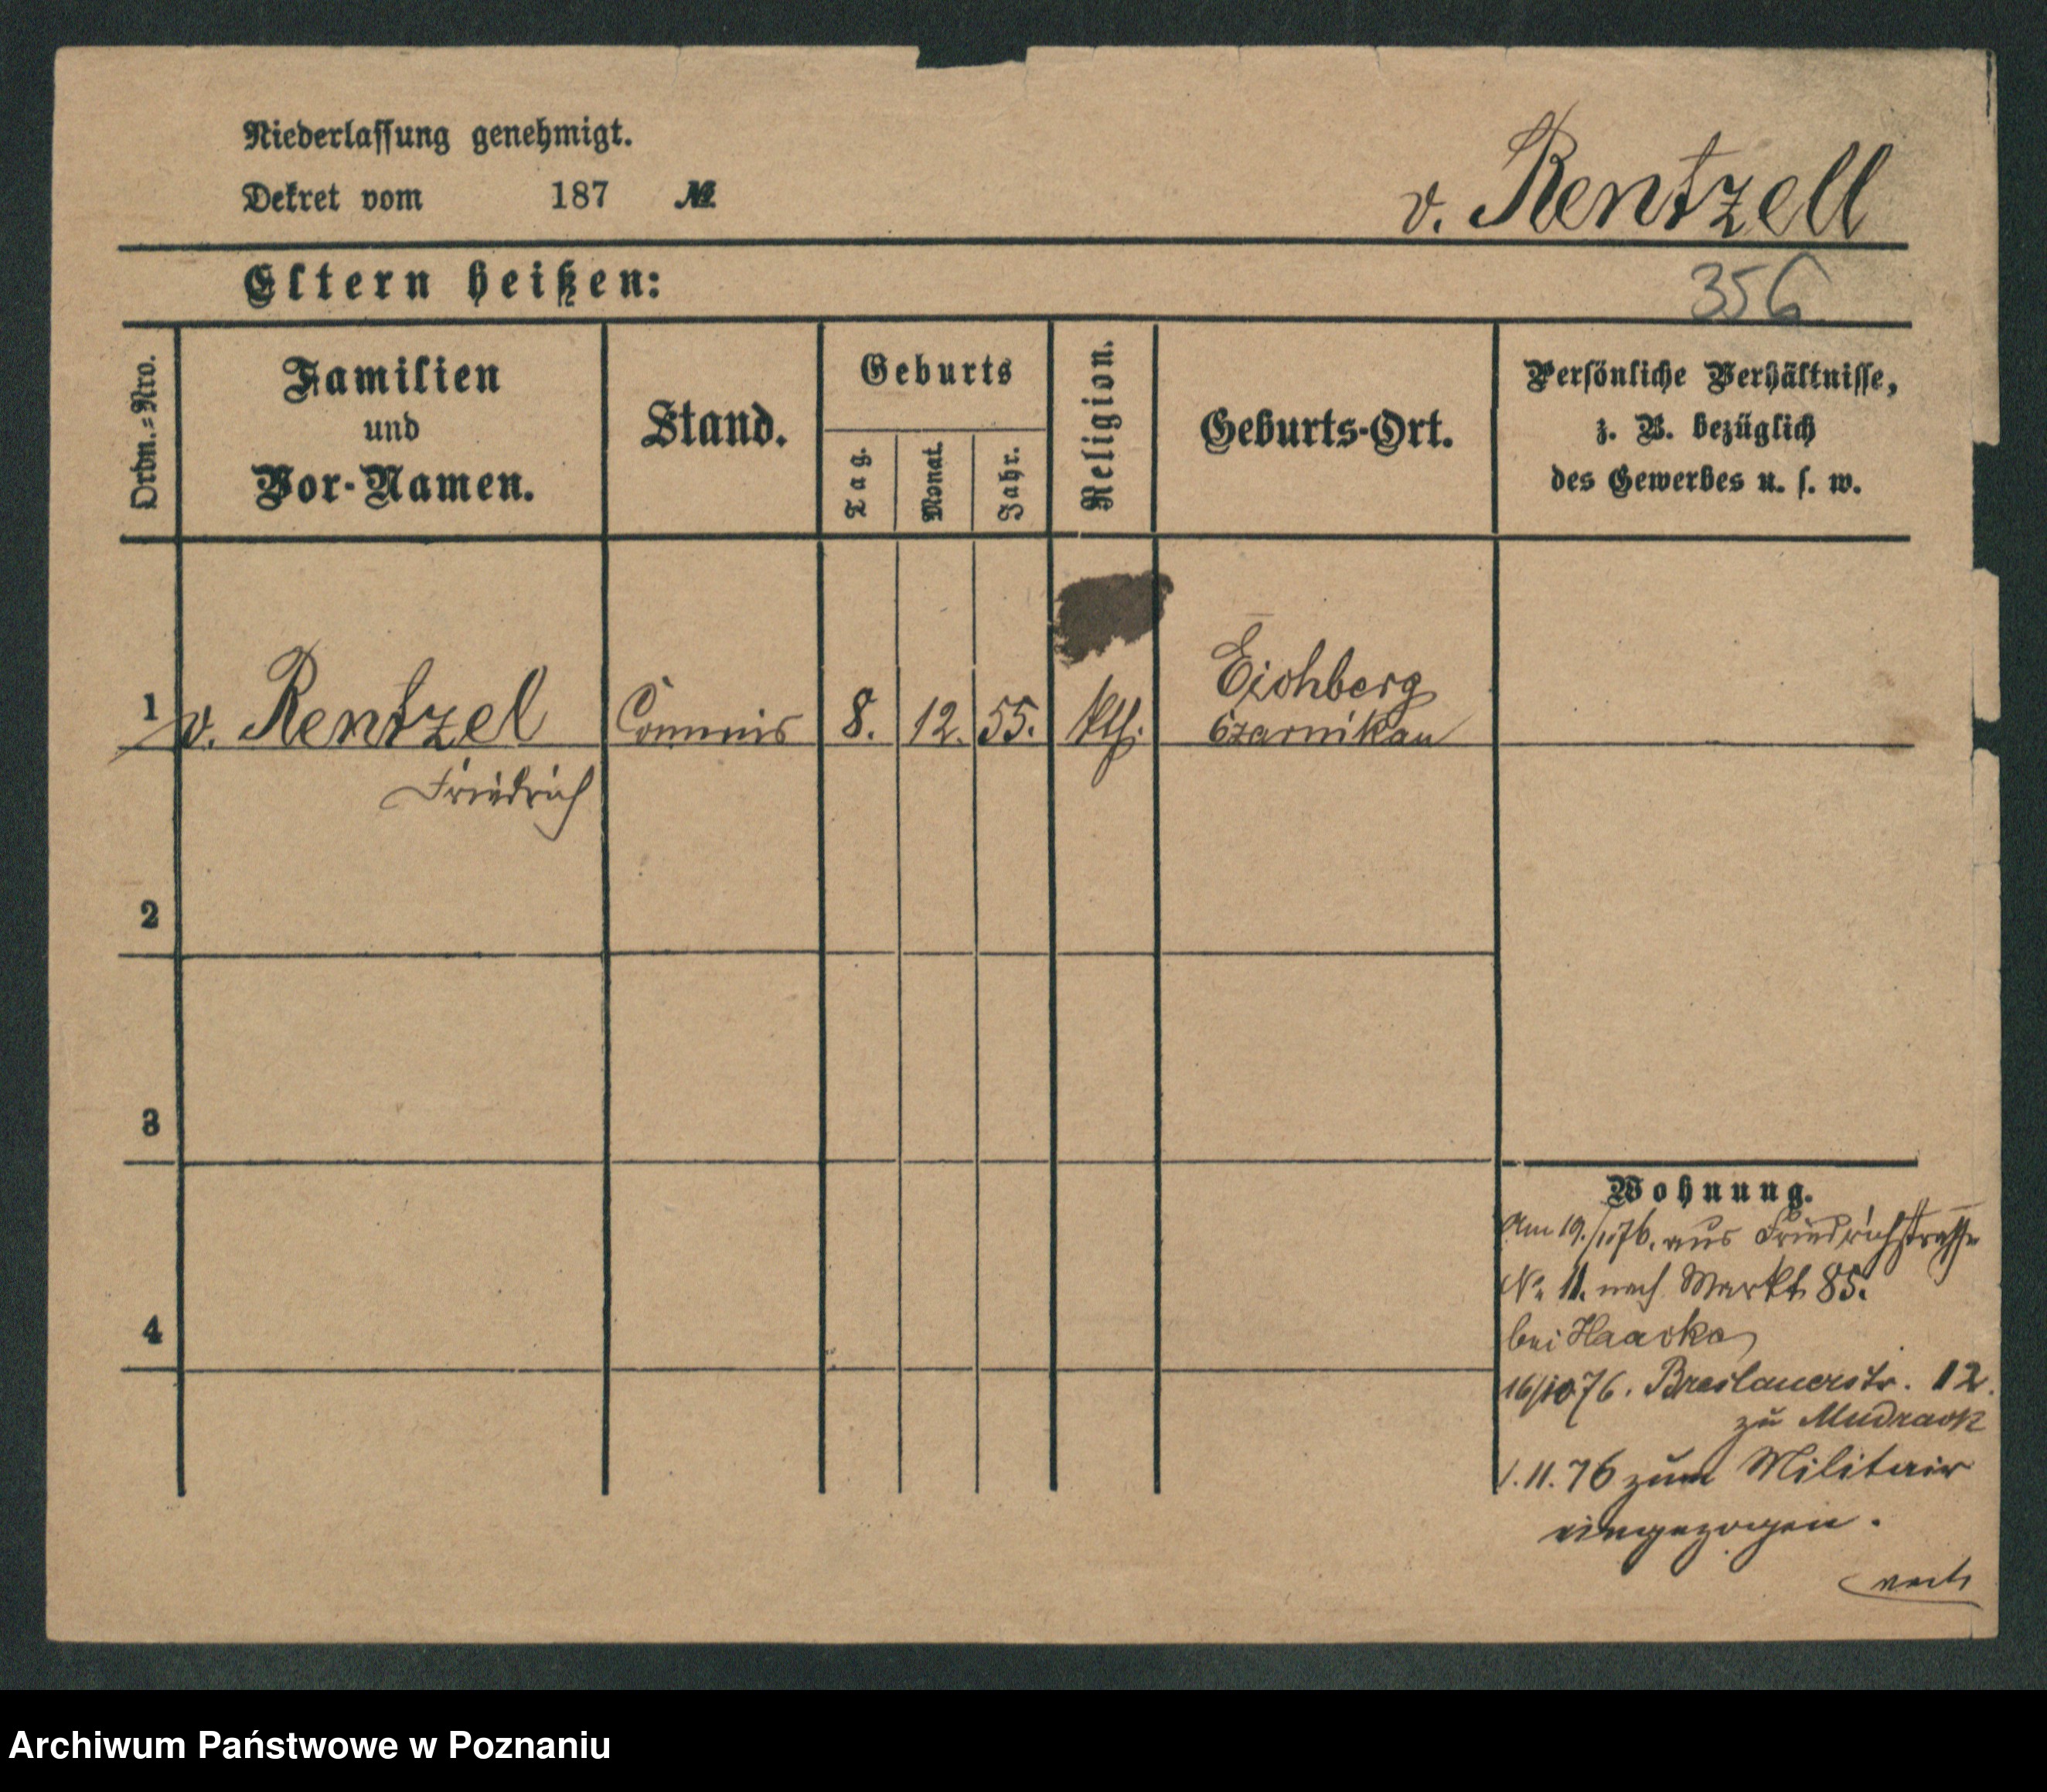 Niederlassung genehmigt.
Dekret vom 187 №
v. Rentzell
Eltern heißen:
356
Ordn.=Nro.
Familien
und
Vor-Namen.
Stand.
Geburts
Tag.
Monat.
Jahr.
Religion.
Geburts-Ort.
Persönliche Verhältnisse,
z. B. bezüglich
des Gewerbes u. s. w.
Eichberg
1 v. Rentzel Commis 8. 12. 55. Czarnikau
Friedrich
2
3
4
Wohnung.
Am 19./1076. aus Friedrichstrasse
No 11. nach Markt 85.
bei Haacke
16/1076. Breslauerstr. 12.
zu Mudrack
1.11.76 zum Militair
eingezogen.
Archiwum Państwowe w Poznaniu